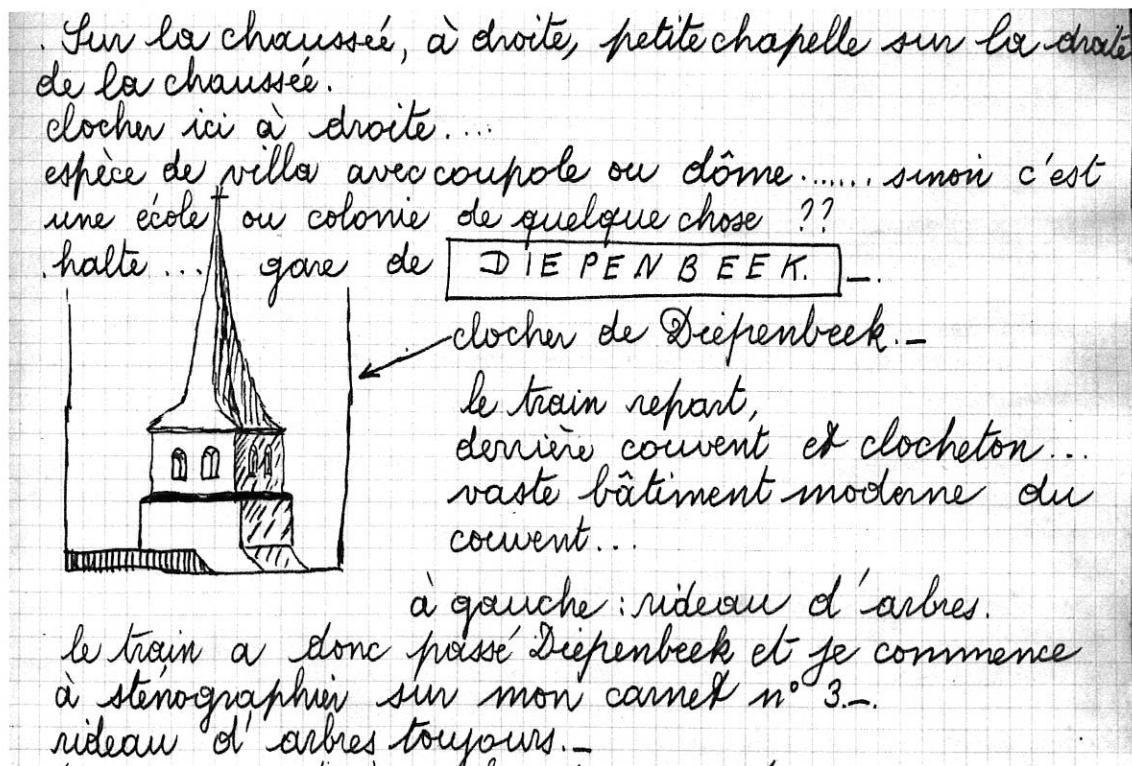 . Sur la chaussée, à droite, petite chapelle sur la droite
de la chaussée.
clocher ici à droite....
espèce de villa avec coupole ou dôme....... sinon c'est
une école ou colonie de quelque chose ??
.halte... gare de DIEPENBEEK. _.
clocher de Diepenbeek._
le train repart,
derrière couvent et clocheton...
vaste bâtiment moderne du
couvent...
à gauche : rideau d'arbres.
le train a donc passé Diepenbeek et je commence
à sténographier sur mon carnet n° 3._.
rideau d'arbres toujours._